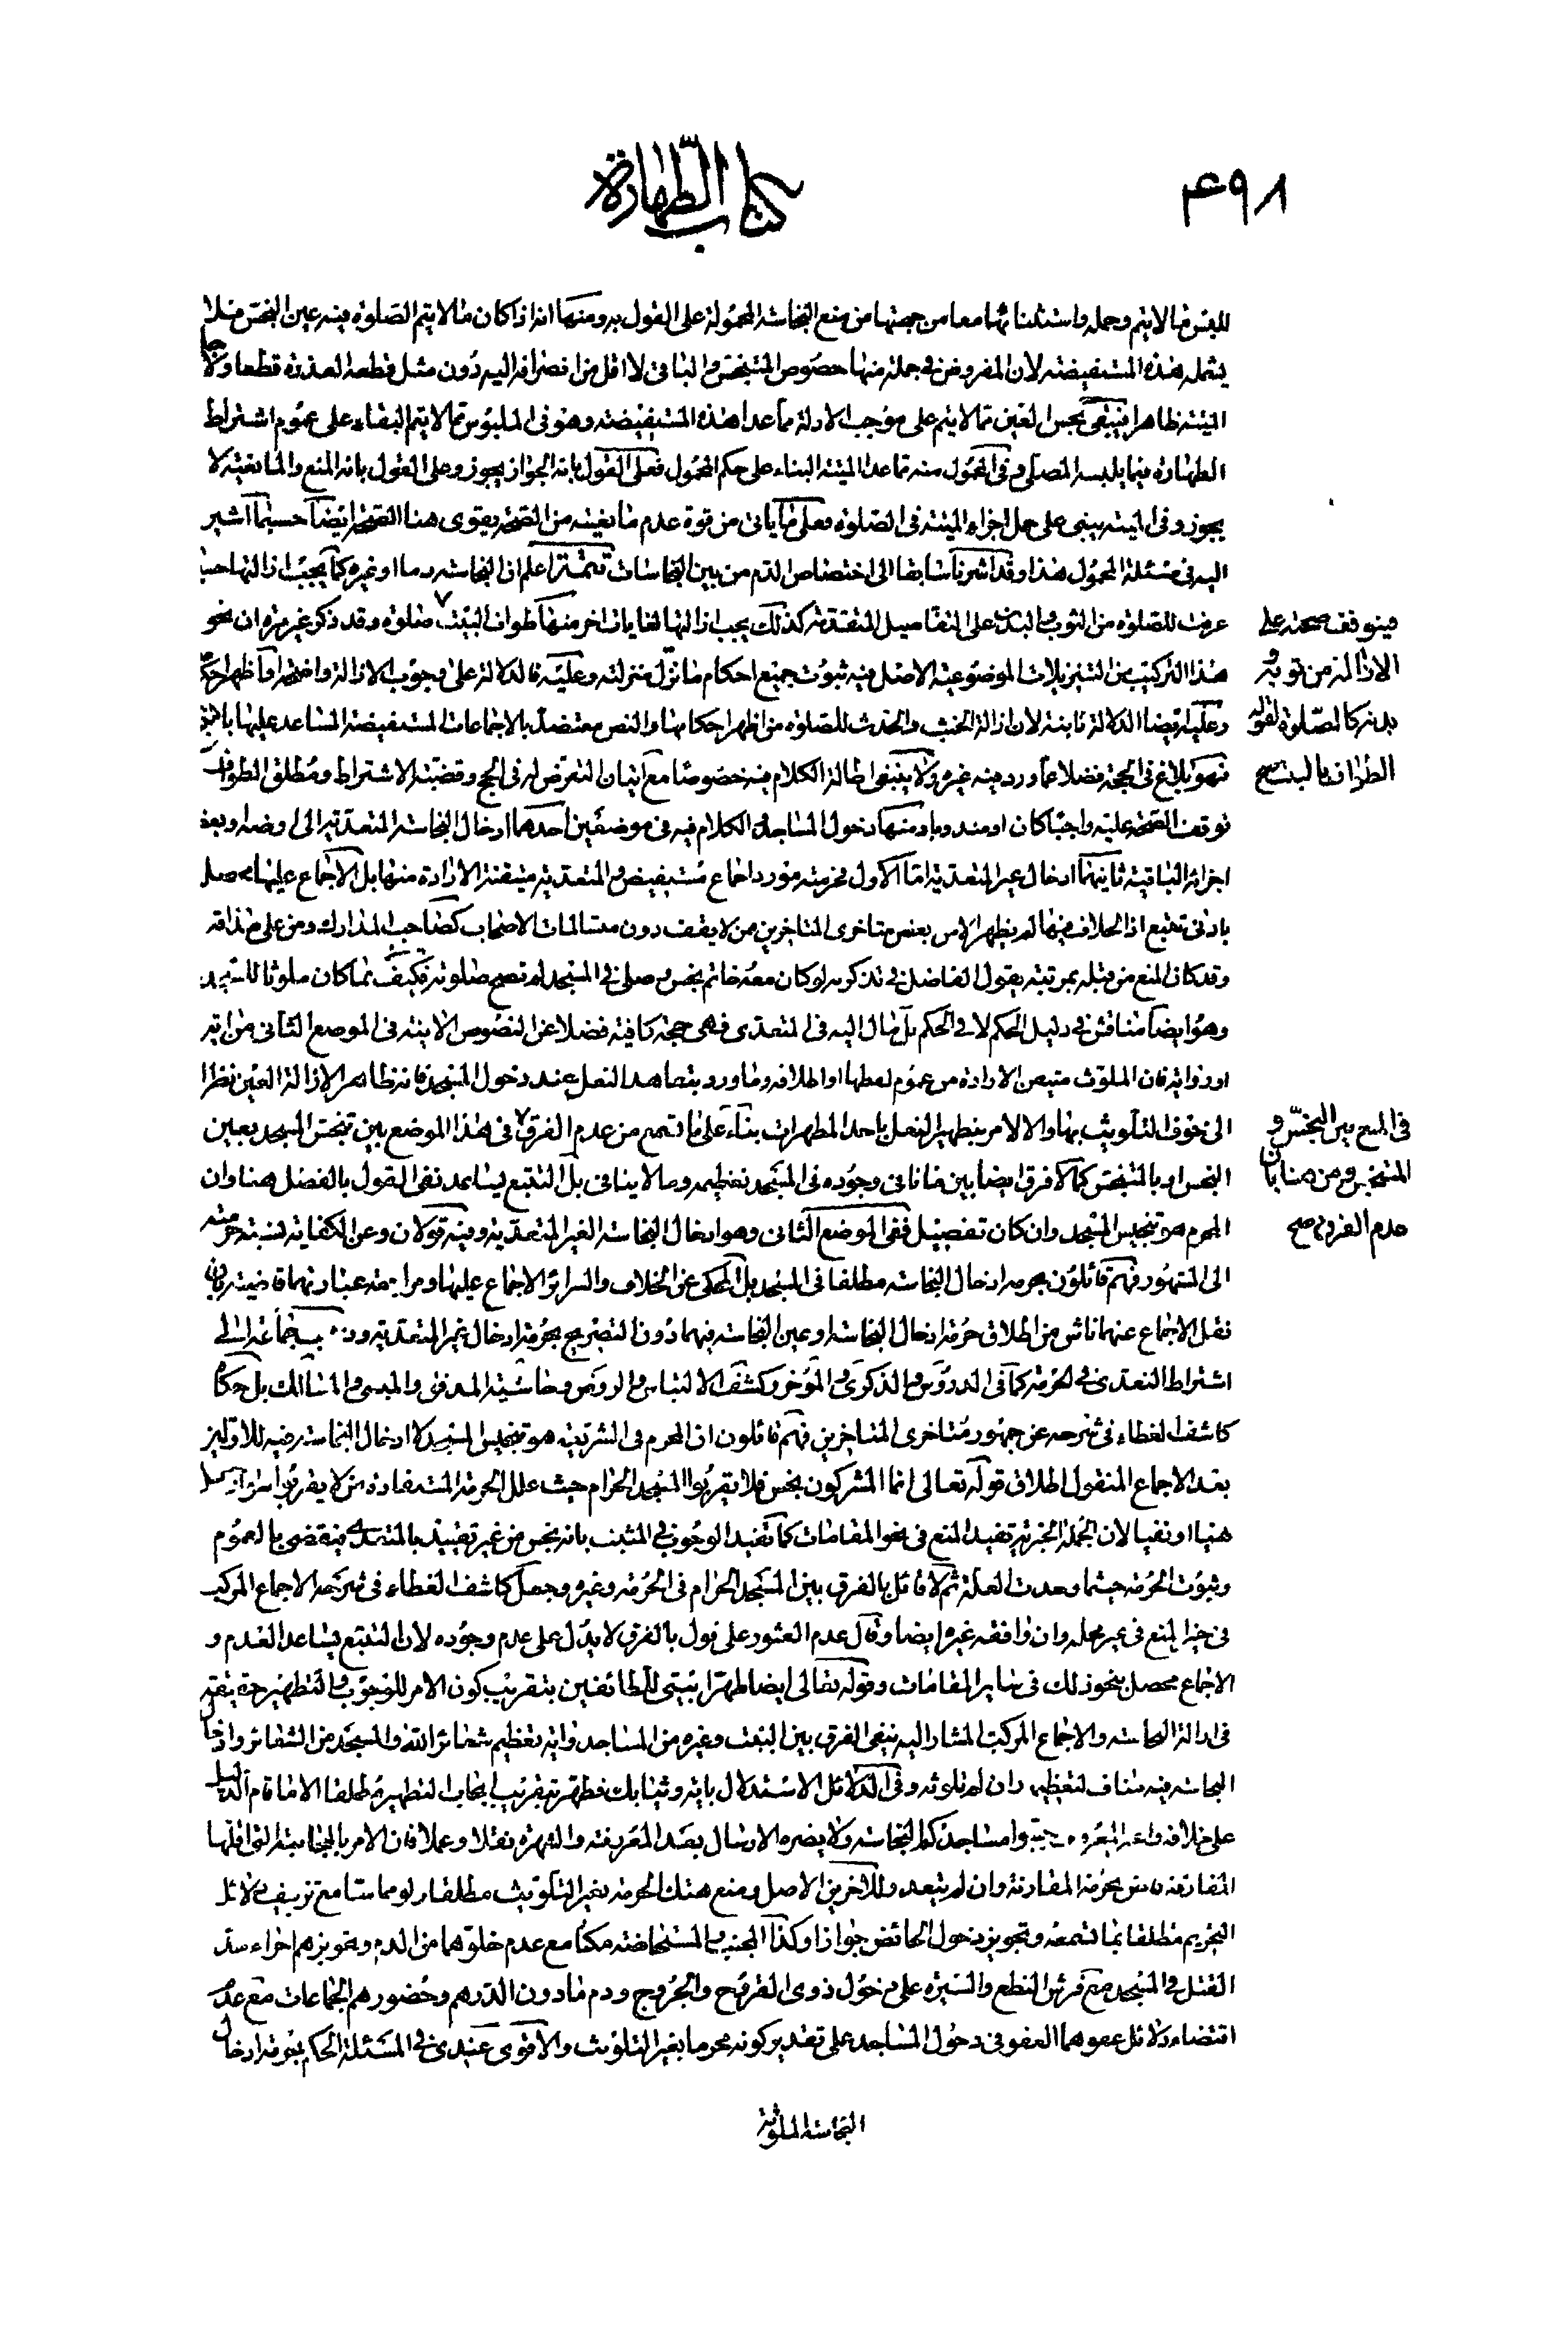 ۴۹۸
كتاب الطهارة
للبس ما لا يتم وحمله واستثنائهما معا من جهتها من منع النجاسة المحمولة على القول به ومنها انه اذا كان ما لا يتم الصلوة فيه عين النجس فلا
يشمله هذه المستفيضة لان المفروض في جملة منها خصوص المتنجس والباقى لا اقل من انصرافه اليه دون مثل قطعة العذرة قطعا و
الميتة ظاهرا فيبقى نجس العين مما لا يتم على موجب الادلة ما عدا هذه المستفيضة وهو في الملبوس مما لا يتم البقاء على عموم اشتراط
الطهارة فيما يلبسه المصلى وفي المحمول منه مما عدا الميتة البناء على حكم المحمول فعلى القول بانه الجواز يجوز وعلى القول بانه المنع والمانعية لا
يجوز وفي الميتة يبنى على حمل اجزاء الميتة في الصلوة فعلى ما ياتى من قوة عدم مانعيته من الصحة يقوى هنا الصحة ايضا حسبما اشير
اليه في مسئلة المحمول هذا وقد اشرنا سابقا الى اختصاص الدم من بين النجاسات تتمة اعلم ان النجاسة دما او غيره كما يجب ازالتها حسبما
عرفت للصلوة من الثوب والبدن على التفاصيل المتقدمة كذلك يجب ازالتها لغايات اخر منها طواف البيت صلوة وقد ذكر غير مرة ان نحو
هذا التركيب من التنزيلات الموضوعية الاصل فيه ثبوت جميع احكام ما نزل منزلته وعليه فالدلالة على وجوب الازالة واضحة واظهر احكامه
وعليه ايضا الدلالة ثابتة لان ازالة الخبث والحدث للصلوة من اظهر احكامها والنص معتضد بالاجماعات المستفيضة المساعد عليها بالتتبع
فهو بلاغ في الحجة فضلا عما ورد فيه غيره ولا ينبغى اطالة الكلام فيه خصوصا مع اتيان التعرض له في الحج وقضيته الاشتراط ومطلق الطواف
توقف الصحة عليه واجبا كان او مندوبا ومنها دخول المساجد والكلام فيه في موضعين احدهما ادخال النجاسة المتعدية الى ارضه او بعض
اجزائه الباقية ثانيهما ادخال غير المتعدية اما الاول فحرمته مورد اجماع مستفيض والمتعدية متيقنة الارادة منها بل الاجماع عليها محصل
بادنى تتبع اذ الخلاف فيها لم يظهر الا من بعض متاخرى المتاخرين ممن لا يقف دون مسالمات الاصحاب كصاحب المدارك ومن على مذاقه
وقد كان المنع من قبله بمرتبة يقول الفاضل في تذكرته لو كان معه خاتم نجس وصلى في المسجد لم تصح صلوته فكيف بما كان ملوثا للمسجد
وهو ايضا مناقش في دليل الحكم لا في الحكم بل مال اليه في المتعدى فهى حجة كافية فضلا عن النصوص الاتية في الموضع الثانى من اية
او رواية فان الملوث متيقن الارادة من عموم لفظها او اطلاقه وما ورد بتعاهد النعل عند دخول المسجد فانه ظاهر الازالة العين نظرا
الى خوف التلويث بها والا لامر بتطهير النعل باحد المطهرات بناء على ما تسمع من عدم الفرق في هذا الموضع بين تنجس المسجد بعين
النجس او بالمتنجس كما لا فرق ايضا بين ما نافى وجوده في المسجد تعظيمه وما لا ينافى بل التتبع يساعد نفى القول بالفصل هنا وان
المحرم هو تنجيس المسجد وان كان تفصيل ففي الموضع الثانى وهو ادخال النجاسة الغير المتعدية وفيه قولان وعن الكفاية نسبة حرمته
الى المشهور فهم قائلون بحرمة ادخال النجاسة مطلقا في المسجد بل المحكى عن الخلاف والسرائر الاجماع عليها ومراجعة عباراتهما قاضية بان
نقل الاجماع عنهما ناش من اطلاق حرمة ادخال النجاسة او عين النجاسة فيهما دون التصريح بحرمة ادخال غير المتعدية جماعة الى
اشتراط التعدى في الحرمة كما في الدروس والذكرى والموجز وكشف الالتباس والروض وحاشية المدقق والميسى والمسالك بل حكاه
كاشف الغطاء في شرحه عن جمهور متاخرى المتاخرين فهم قائلون ان المحرم في الشريعة هو تنجيس المسجد لا ادخال النجاسة فيه للاولين
بعد الاجماع المنقول اطلاق قوله تعالى انما المشركون نجس فلا يقربوا المسجد الحرام حيث علل الحرمة المستفادة من لا يقربوا سواء كان
نهيا او نفيا لان الجملة الخبرية تفيد المنع في نحو المقامات كما تفيد الوجوب في المثبت بانه نجس من غير تقييد بالمتعدى فيقضى بالعموم
وثبوت الحرمة حيثما وجدت العلة ثم لا قائل بالفرق بين المسجد الحرام في الحرمة وغيره وجعل كاشف الغطاء في شرحه الاجماع المركب
في حيز المنع في غير محله وان وافقه غيره ايضا وقال عدم العثور على قول بالفرق لا يدل على عدم وجوده لان التتبع يساعد العدم و
الاجماع محصل بنحو ذلك في ساير المقامات وقوله تعالى ايضا طهرا بيتى للطائفين بتقريب كون الامر للوجوب والتطهير حقيقة
في ازالة النجاسة والاجماع المركب المشار اليه ينفى الفرق بين البيت وغيره من المساجد واية تعظيم شعائر الله والمسجد من الشعائر وادخال
النجاسة فيه مناف لتعظيمه وان لم تلوثه وفي الدلائل الاستدلال باية وثيابك فطهر بتقريب ايجاب التطهير مطلقا الا ما قام الدليل
على خلافه جنبوا مساجدكم النجاسة ولا يضره الارسال بعد المعروفية والشهرة نقلا وعملا فان الامر بالمجانبة التى اقلها
المفارقة قاض بحرمة المقارنة وان لم يتعد وللاخرين الاصل ومنع هتك الحرمة بغير التلويث مطلقا مع تزييف دلائل
التحريم مطلقا بما تسمعه وتجويز دخول الحائض جوازا وكذا الجنب والمستحاضة مكثا مع عدم خلوهما من الدم وتجويزهم اجراء
القتل في المسجد مع فرش النطع والسيرة على دخول ذوى القروح والجروح ودم ما دون الدرهم وحضورهم الجماعات مع عدم
اقتضاء دلائل عفوهما العفو في دخول المساجد على تقدير كونه محرما بغير التلويث والاقوى عندى في المسئلة الحكم بحرمة ادخال
النجاسة الملوثة
فيتوقف صحته على
الازالة من ثوبه و
بدنه كالصلوة لقوله
الطواف بالبيت صح
في المنع بين النجس و
المتنجس ومن هنا بان
عدم الفرق صح